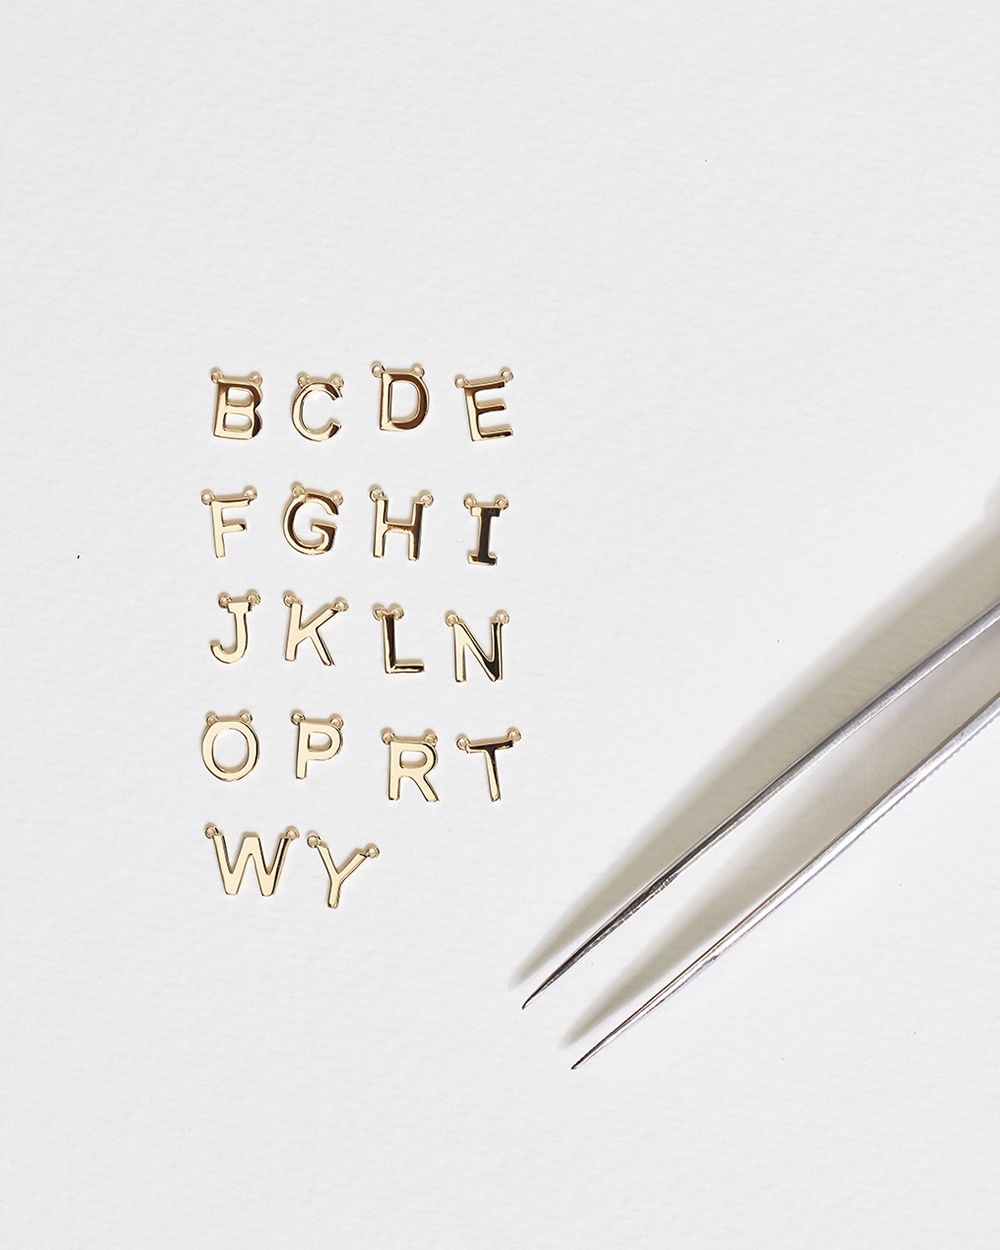 B C D E
F G H I
J K L N
O P R T
W Y